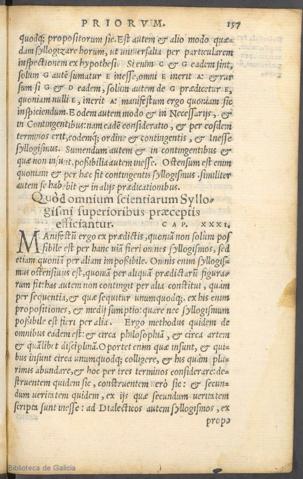 PRIORVM. 157
quodq; propositorum sic. Est autem & alio modo quæ-
dam syllogizare horum, ut uniuersalia per particularem
inspectionem ex hypothesi. Si enim C & G eadem sint,
solum G autẽ sumatur E inesse, omni E inerit A: & rur
sum si C & D eadem, solùm autem de G prædicetur E,
quoniam nulli E, inerit A: manifestum ergo quoniam sic
inspiciendum. Eodem autem modo & in Necessarijs, &
in Contingentibus: nam eadẽ consideratio, & per eosdem
terminos erit, eodemq; ordine & contingentis, & Inesse
syllogismus. Sumendum autem & in contingentibus &
quæ non insunt, possibilia autem inesse. Ostensum est enim
quoniam & per hæc fit contingentis syllogismus. similiter
autem se habebit & in alijs prædicationibus.
Quòd omnium scientiarum Syllo-
gismi superioribus præceptis
efficiantur. CAP. XXXI.
MAnifestũ ergo ex prædictis, quoniã non solùm pos
sibile est per hanc uiã fieri omnes syllogismos, sed
etiam quoniã per aliam impossibile. Omnis enim syllogis-
mus ostensiuus est, quoniã per aliquã prædictarũ figura-
rum fit: has autem non contingit per alia constitui, quàm
per sequentia, & quæ sequitur unumquodq;. ex his enim
propositiones, & medij sumptio: quare nec syllogismum
possibile est fieri per alia. Ergo methodus quidem de
omnibus eadem est: & circa philosophiã, & circa artem
& quãlibet disciplinã. Oportet enim quæ insunt, & qui-
bus insunt circa unumquodq; colligere, & his quàm plu-
rimis abundare, & hoc per tres terminos considerare: de-
struentem quidem sic, construentem uerò sic: & secun-
dum ueritatem quidem, ex ijs quæ secundum ueritatem
scripta sunt inesse: ad Dialecticos autem syllogismos, ex
propo
Biblioteca de Galicia